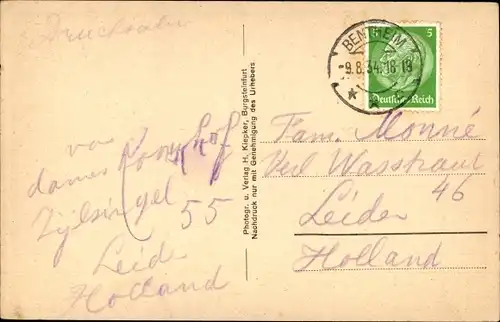 Drucksache
van
dames Kornhof
Zijlsingel
55
Leide
Holland
Photogr. u. Verlag H. Kiepker, Burgsteinfurt
Nachdruck nur mit Genehmigung des Urhebers
BENTHEIM
9.8.34.18-19
5 5
Deutsches Reich
Fam. Monné
Ved Wasstraat
46
Leiden
Holland